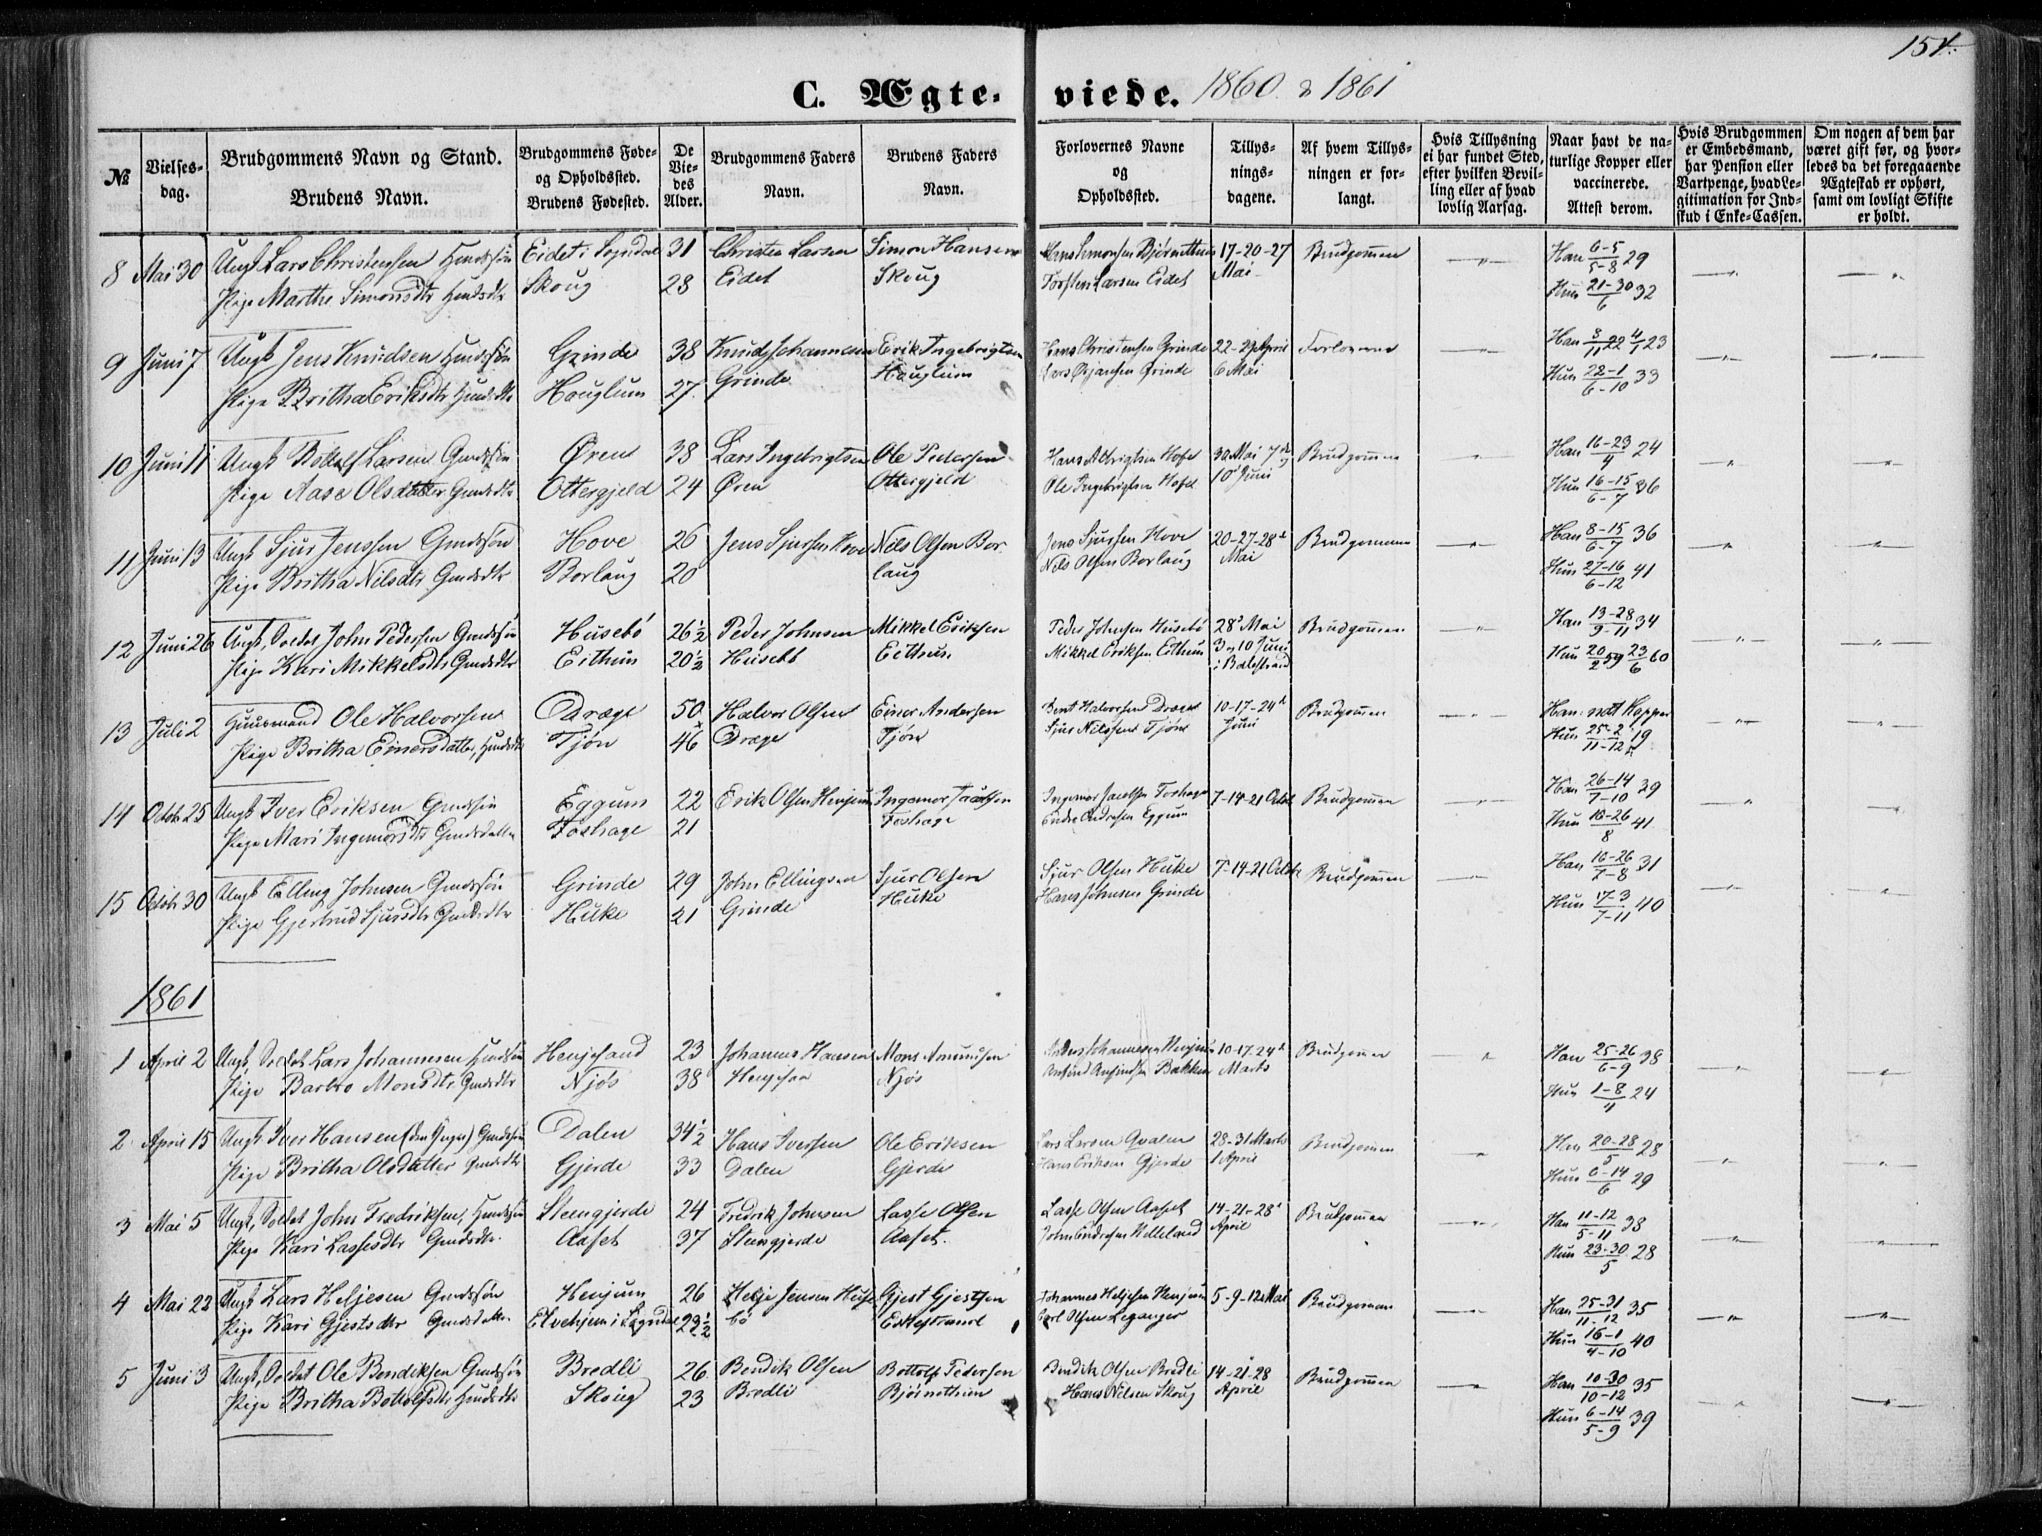 154.
C. Ægteviede. 1860 & 1861
№
Vielsesdag.
Brudgommens Navn og Stand.
Brudens Navn.
Brudgommens Føde- og Opholdssted.
Brudens Fødested.
De Viedes Alder.
Brudgommens Faders Navn.
Brudens Faders Navn.
Forlovernes Navne og Opholdssted.
Tillysningsdagene.
Af hvem Tillysningen er forlangt.
Hvis Tillysning ei har fundet Sted, efter hvilken Bevilling eller af hvad lovlig Aarsag.
Naar havt de naturlige Kopper eller vaccinerede. Attest derom.
Hvis Brudgommen er Embedsmand, har Pension eller Vartpenge, hvad Legitimation for Indskud i Enke-Cassen.
Om nogen af dem har været gift før, og hvorledes da det foregaaende Ægteskab er ophørt, samt om lovligt Skifte er holdt.
8 Mai 30 Ungk Lars Christensen Huusssøn Eidet i Sogndal 31 Christen Larsen Simon Hansen Hans Simonsen 17-20-27 Brudgommen Han 6-5/5-8 29
Pige Marthe Simonsdtr Huusdtr Skoug 28 Eidet Skoug Torsten Larsen Eidet Mai Hun 21-30/6 32
9 Juni 7 Ungk Jens Knudsen Grinde 38 Knud Johannesen Erik Ingebrigtsen Hans Christensen Grinde 22-29 April Forloverne Han 3/11 22 4/1 23
Pige Britha Eriksdtr Houglum 27. Grinde Houglum Lars Ørjansen Grinde 6 Mai Hun 22-1/6-10 33
10 Juni 11 Ungk Botolf Larsen Gmdssøn Øren 38 Lars Ingebrigtsen Ole Pedersen Hans Hofst 30 Mai 7de Brudgommen Han 16-23/4 24
Pige Aase Olsdatter Gmdsdtr Ottergjeld 24 Øren Ottergjeld Ole Ingebrigtsen 10 Juni Hun 16-15/6-7 36
11 Juni 13 Ungk Sjur Jenssen Gmdssøn Hove 26 Jens Sjursen Hove Nils Olsen Bor- Jens Sjursen Hove 20-27-28d Brudgommen Han 8-15/6-7 36
Pige Britha Nilsdtr Gmdsdtr Borlaug 20 laug Nils Olsen Borlaug Mai Hun 27-16/6-12 41
12 Juni 26 Ungk, Soldat John Pedersen Gmdssøn Husebö 26½ Peder Johnsen Mikkel Eriksen Peder Johnsen Husebö 28 Mai Brudgommen Han 13-28/9-11 34
Pige Kari Mikkelsdtr Gmdsdtr Eithun 20½ Husebö Eithun. Mikkel Eriksen Eithun 3 og 10 Juni i Balestrand Hun 20/2 59 23/6 60
13 Juli 2 Huusmand Ole Halvorsen Dræge 50 Halvor Olsen Einer Andersen Bent Halvorsen Dræge 10-17-24d Brudgommen Han: nat Kopper
Pige Britha Einersdatter, Husdtr Tjøn 46 Dræge Tjøn Sjur Nilssen Tjøn Juni Hun 25-2/11-12 19
14 Octob 25 Ungk Iver Eriksen Gmdssøn Eggum 22 Erik Olsen Henjum Ingemor Foshage 7-14-21 Octob Brudgommen Han 26-14/7-10 39
Pige Mari Ingemorsdtr Gmdsdatter Foshage 21 Endre Andersen Eggum Hun 18-26/8 41
15 Octob 30 Ungk Elling Johnsen Gmdssøn Grinde 29 John Ellingsen Sjur Olsen Sjur Olsen Huke 7-14-21 Octob Brudgommen Han 16-26/7-8 31
Pige Gjertrud Sjursdtr Gmdsdtr Huke 21 Grinde Huke Hans Johnsen Grinde Hun 17-3/7-11 40
1861
1 April 2 Ungk, Soldat Lars Johannesen Henjesand 23 Johannes Hansen Mons Amundsen Anders Johannesen 10-17-24d Brudgommen Han 25-26/6-9 38
Pige Barbro Monsdtr Gmdsdtr Njøs 38 Njøs Bakken Marts Hun 1-8/4 24
2 April 15 Ungk Iver Hansen (den Yngre) Gmdssøn Dalen 34½ Hans Iversen Ole Eriksen Lars Larsen Qvalen 28-31 Marts Brudgommen Han 20-28/5 28
Pige Britha Olsdatter Gmdsdtr Gjerde 33 Dalen Gjerde Hans Eriksen Gjerde 1 April Hun 6-14/6 29
3 Mai 5 Ungk, Soldat John Fredriksen, Stengjerde 24 Fredrik Johnsen Lasse Olsen Lasse Olsen Aaset 14-21-28d Brudgommen Han 11-12/5-11 38
Pige Kari Lassesdtr Gmdsdtr. Aaset 37 Stengjerde Aaset. John Endresen Kelleland April Hun 23-30/5 28
4 Mai 22 Ungk Lars Heljesen Gmdssøn Henjum 26 Helje Jensen Huse- Gjest Gjestsen Johannes Heljesen Henjum 5-9-12 Mai Brudgommen Han 25-31/11-12 35
Pige Kari Gjestsdtr Gmdsdatter Elvehjem i Sogndal 23½ bö Carl Olsen Leganger Hun 16-1/4-10 40
5 Juni 3 Ungk, Soldat Ole Bendiksen Gmdssøn Bredli 26 Bendik Olsen Bottolf Pedersen Bendik Olsen Bredli 14-21-28 Brudgommen Han 10-30/10-12 35
Pige Britha Bottolfsdtr Skoug 23 Bredli Hans Nilsen Skoug April Hun 6-14/5-9 39